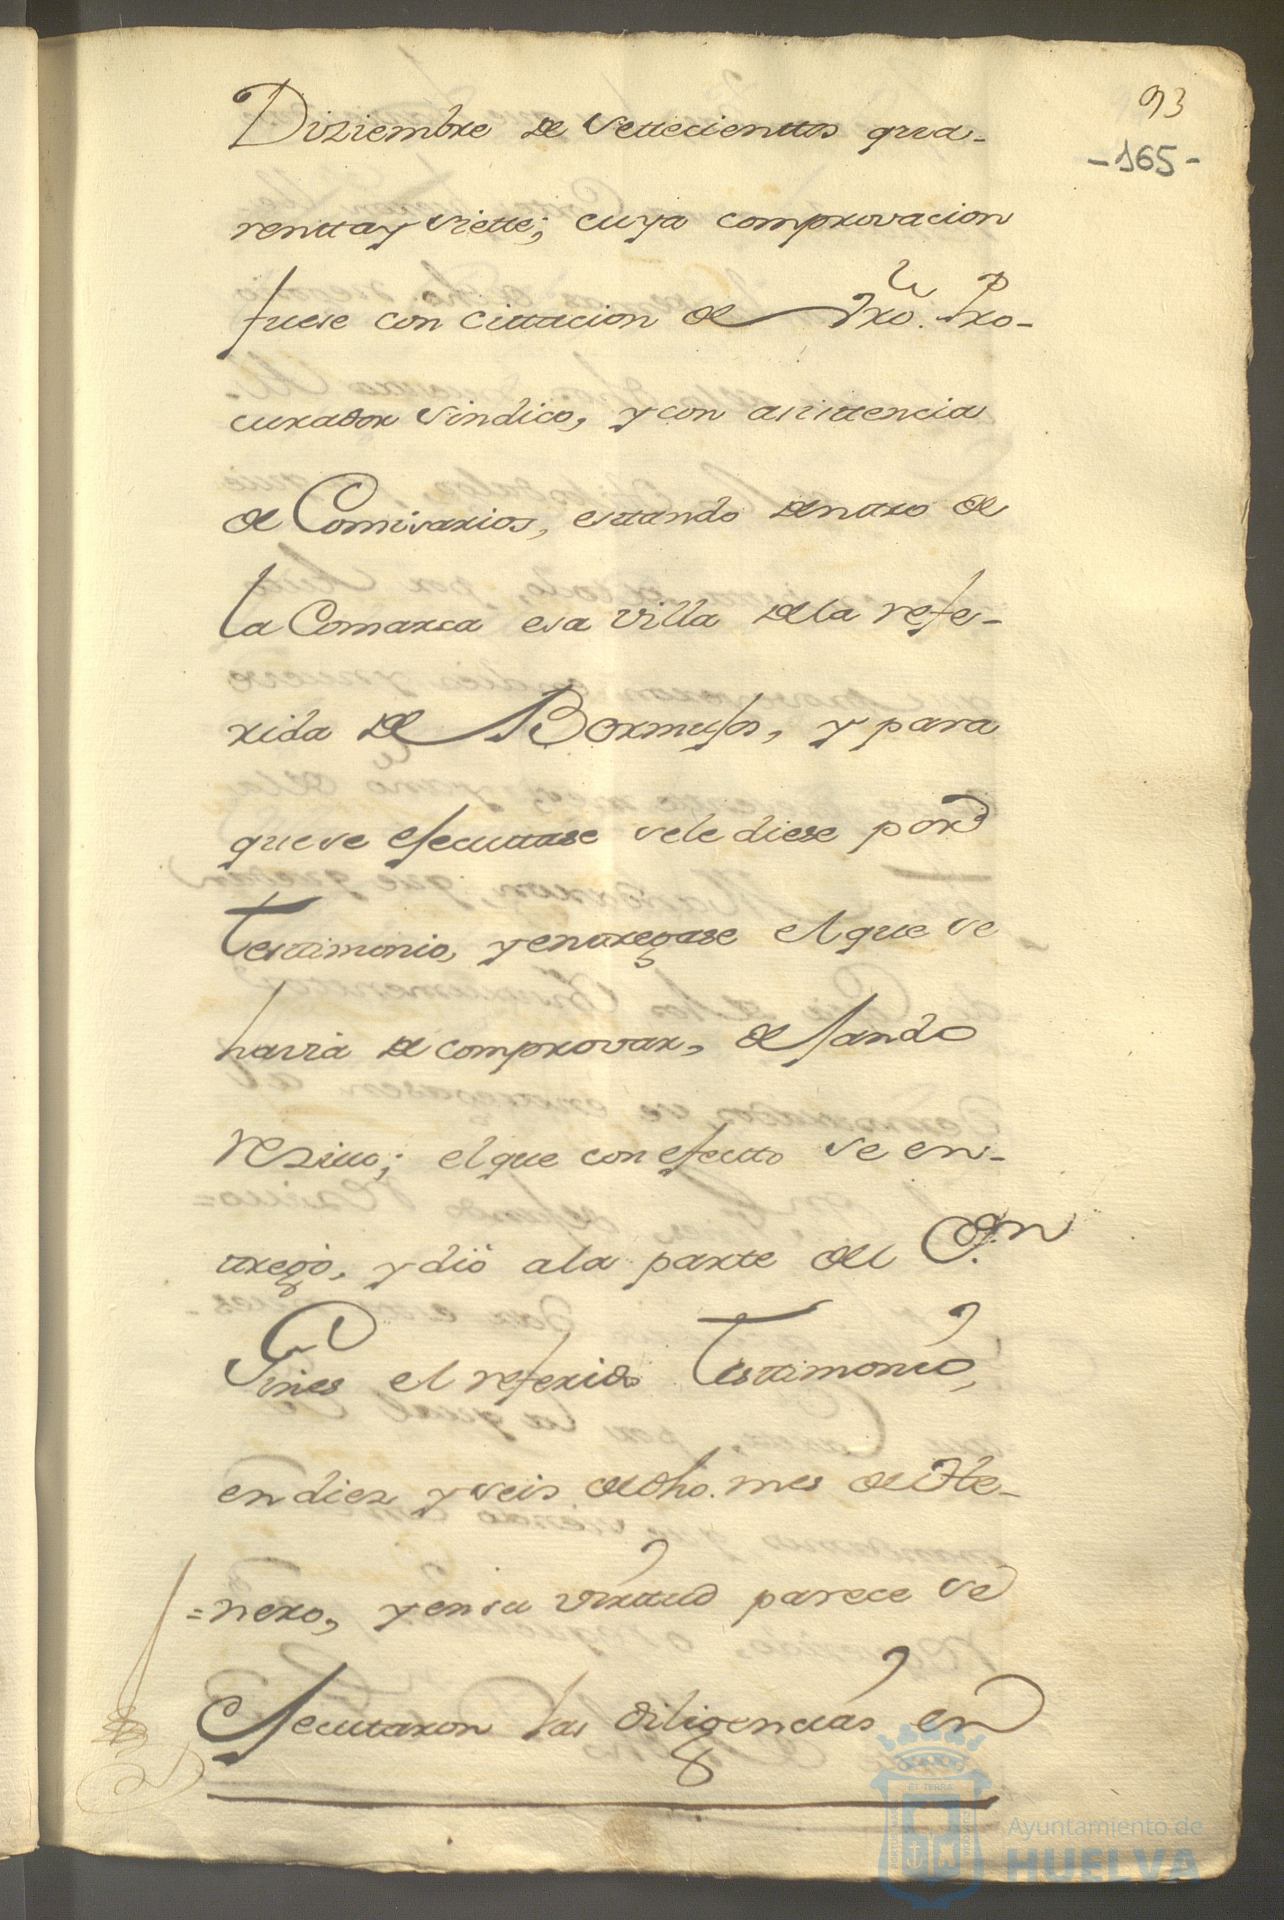 93
-165-
Diziembre de settecienttos qua-
rentta y siette; cuya comprovacion
fuese con cittacion de Nro. Pro-
curador sindico, y con asisttencia
de Comisarios, esttando denttro de
la Comarca esa villa de la refe-
rida de Bormujos, y para
que se efecuttase se le diese por
Testtimonio, y enttregase el que se
havia de comprovar, dejando
reziuo; el que con efectto se en-
ttregò, y diò a la parte del Dn
Gines el referido Testtimonio,
en diez y seis de dho. mes de He-
=nero, y en su virttud parece se
Ejecutaron las diligencias en
Ayuntamiento de
HUELVA